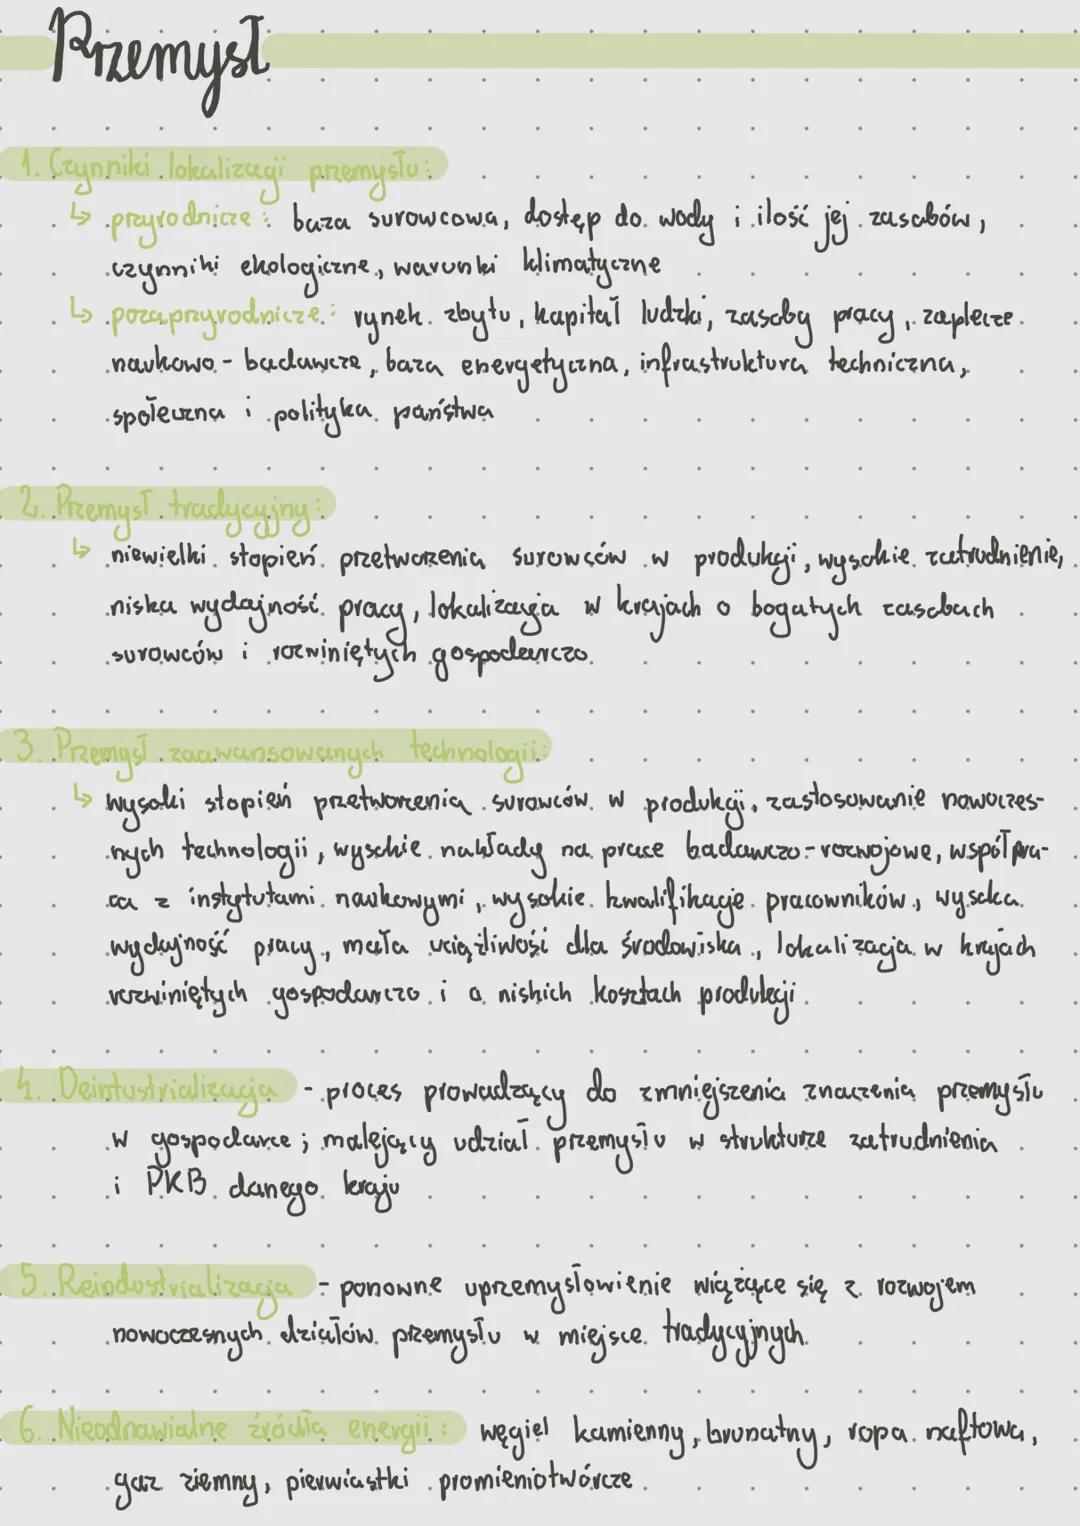 Przemysł
1. Czynniki lokalizacji przemysłu:
↳ przyrodnicze: baza surowcowa, dostęp do wody i ilość jej zasobów,
czynniki ekologiczne, warunki klimatyczne
↳ pozaprzyrodnicze: rynek zbytu, kapitał ludzki, zasoby pracy, zaplecze
naukowo-badawcze, baza energetyczna, infrastruktura techniczna,
społeczna i polityka państwa
2. Przemysł tradycyjny:
↳ niewielki stopień przetworzenia surowców w produkcji, wysokie zatrudnienie,
niska wydajność pracy, lokalizacja w krajach o bogatych zasobach
surowców i rozwiniętych gospodarczo
3. Przemysł zaawansowanych technologii:
↳ wysoki stopień przetworzenia surowców w produkcji, zastosowanie nowoczes-
nych technologii, wysokie nakłady na prace badawczo-rozwojowe, współpra-
ca z instytutami naukowymi, wysokie kwalifikacje pracowników, wysoka
wydajność pracy, mała uciążliwość dla środowiska, lokalizacja w krajach
rozwiniętych gospodarczo i o niskich kosztach produkcji
4. Deintustrializacja - proces prowadzący do zmniejszenia znaczenia przemysłu
w gospodarce; malejący udział przemysłu w strukturze zatrudnienia
i PKB danego kraju
5. Reindustrializacja - ponowne uprzemysłowienie wiążące się z rozwojem
nowoczesnych działów przemysłu w miejsce tradycyjnych
6. Nieodnawialne źródła energii: węgiel kamienny, brunatny, ropa naftowa,
gaz ziemny, pierwiastki promieniotwórcze